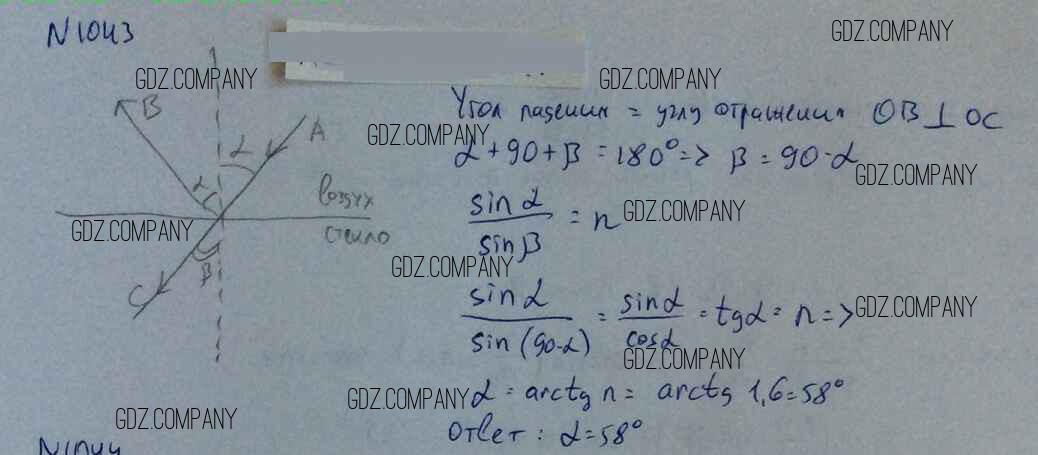 N1043
GDZ.COMPANY
GDZ.COMPANY
GDZ.COMPANY
B
A
α
α
воздух
стекло
β
C
Угол падения = углу отражения OB⊥OC
GDZ.COMPANY
α+90+β=180°=> β=90-α
GDZ.COMPANY
sinα/sinβ = n
GDZ.COMPANY
GDZ.COMPANY
GDZ.COMPANY
sinα/sin(90-α) = sinα/cosα = tgα = n =>
GDZ.COMPANY
GDZ.COMPANY
α = arctg n = arctg 1,6=58°
GDZ.COMPANY
GDZ.COMPANY
Ответ: α=58°
N1044